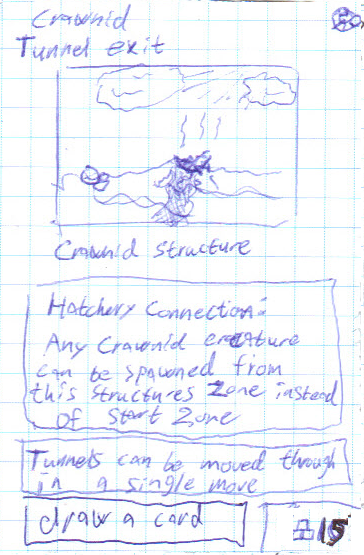 Crawnid
Tunnel exit
Crawnid structure
Hatchery Connection:
Any Crawnid creature
can be spawned from
this structures zone instead
of start zone
Tunnels can be moved through
in a single move
draw a card
#15